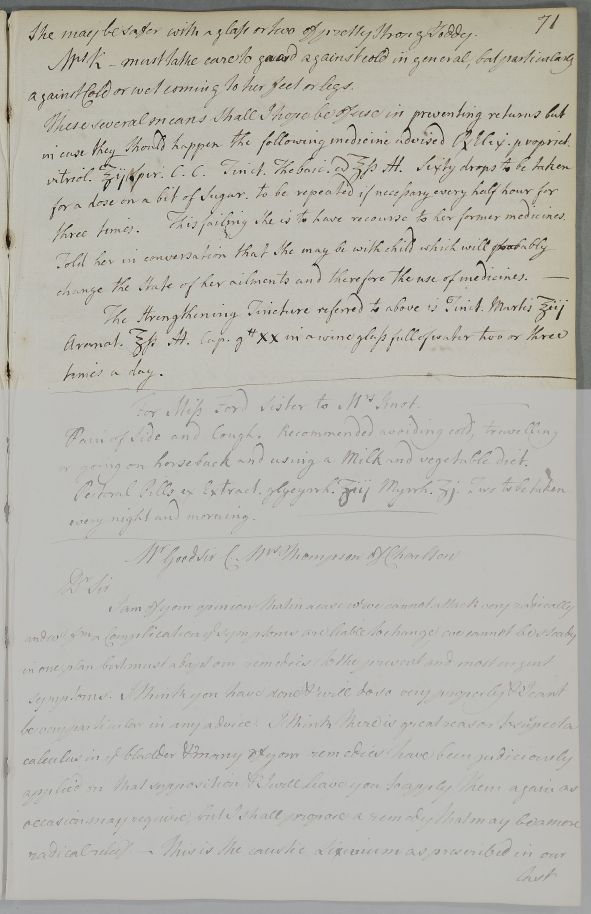 71
she may be safer with a glass or two of pretty strong Toddy.
Mrs K – must take care to guard against cold in general, but particularly
against Cold or wet coming to her feet or legs.
These several means shall I hope be of use in preventing returns but
in case they should happen the following medicine advised Rx Elix. propriet.
vitriol. ʒij Spir. C. C. Tinct. Thebaic. ʒß M. Sixty drops to be taken
for a dose on a bit of Sugar. to be repeated if necessary every half hour for
three times. This failing she is to have recourse to her former medicines.
Told her in conversation that she may be with child which will probably
change the State of her ailments and therefore the use of medicines. —
The Strengthening Tincture referred to above is Tinct. Martis ʒiij
Aromat. ʒß M. Cap. gtt XX in a wine glass full of water two or three
times a day.
For Miss Ford Sister to Mrs Knot.
Pain of Side and Cough. Recommended avoiding cold, travelling
or going on horseback and using a Milk and vegetable diet.
Pectoral Pills ex Extract. glycyrrh. ʒiij Myrrh. ʒj. Two to be taken
every night and morning.
Mr Goodsir C. Mrs Thompson of Charlton
Dr Sir
I am of your opinion that in a case we cannot attack very radically
and wh from a Complication of symptoms are liable to change we cannot be steady
in one plan but must adapt our remedies to the present and most urgent
symptoms. I think you have done & will do so very properly & I can't
be very particular in my advice. I think there is great reason to suspect a
calculus in ye bladder & many of your remedies have been judiciously
applied on that supposition & I will leave you to apply them again as
occasion may require, but I shall propose a remedy that may be a more
radical relief — This is the caustic Lixivium as prescribed in our
last